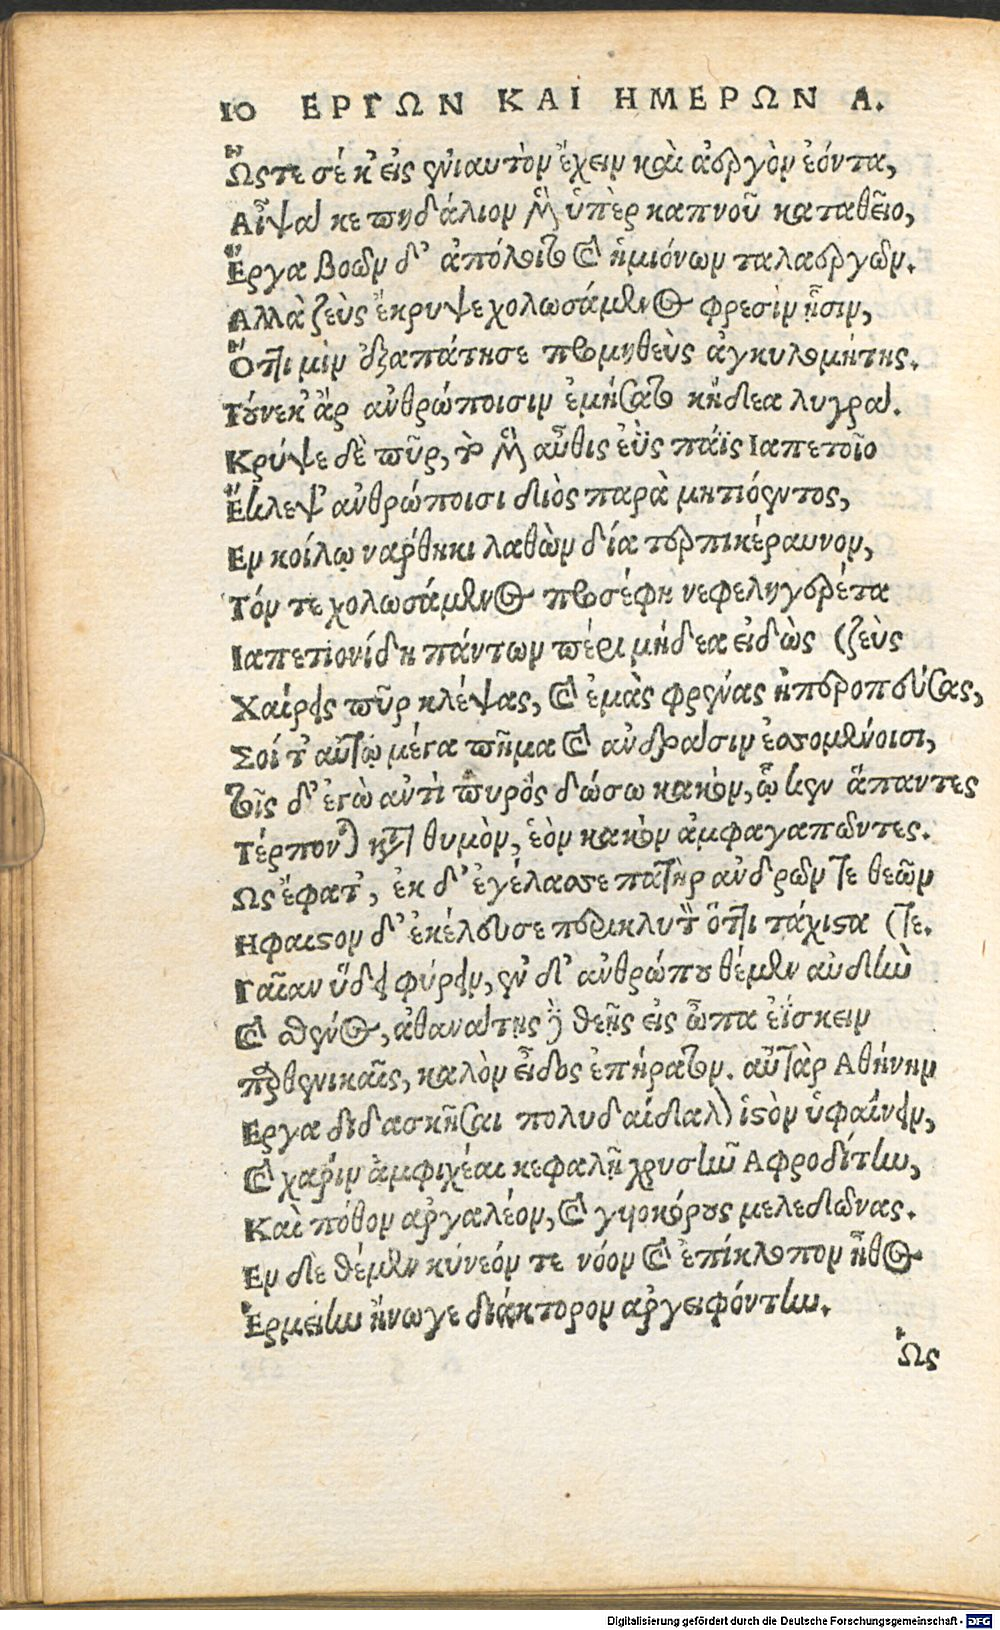 10 ΕΡΓΩΝ ΚΑΙ ΗΜΕΡΩΝ Α.
Ὥςτε σέ κ' εἰς ἐνιαυτὸν ἔχειν καὶ ἀεργὸν ἐόντα,
Αἶψά κε πηδάλιον μὲν ὑπὲρ καπνοῦ καταθεῖο,
Ἔργα βοῶν δ' ἀπόλοιτο καὶ ἡμιόνων ταλαεργῶν.
Αλλὰ ζεὺς ἔκρυψε χολωσάμενος φρεσὶν ᾗσιν,
Ὅττι μὶν ἐξαπάτησε προμηθεὺς ἀγκυλομήτης.
Τούνεκ' ἄρ ἀνθρώποισιν ἐμήσατο κήδεα λυγρά.
Κρύψε δὲ πῦρ, τὸ μὲν αὖθις ἐῢς πάϊς Ιαπετοῖο
Ἔκλεψ' ἀνθρώποισι διὸς παρὰ μητιόεντος,
Εν κοίλῳ νάρθηκι λαθὼν δία τερπικέραυνον,
Τόν τε χολωσάμενος προσέφη νεφεληγερέτα
Ιαπετιονίδη πάντων πέρι μήδεα εἰδὼς (ζεὺς
Χαίρεις πῦρ κλέψας, καὶ ἐμὰς φρένας ἠπεροπεύσας,
Σοί τ' αὐτῷ μέγα πῆμα καὶ ανδράσιν ἐσσομένοισι,
τοῖς δ' ἐγὼ αντὶ πυρὸς δώσω κακὸν, ᾧ κεν ἅπαντες
Τέρπονται κατὰ θυμὸν, ἑὸν κακὸν ἀμφαγαπῶντες.
Ως ἔφατ', ἐκ δ' ἐγέλασσε πατὴρ ανδρῶν τε θεῶν
Ηφαιστον δ' ἐκέλευσε περικλυτὸν ὅττι τάχιστα (τε.
Γαῖαν ὕδει φύρειν, ἐν δ' ἀνθρώπου θέμεν αὐδὴν
καὶ σθένος, ἀθανάτῃς δὲ θεῇς εἰς ὦπα ἐΐσκειν
παρθενικαῖς, καλὸν εἶδος ἐπήρατον. αὐτὰρ Αθήνην
Εργα διδασκῆσαι πολυδαίδαλον ἱστὸν ὑφαίνειν,
καὶ χάριν ἀμφιχέαι κεφαλῇ χρυσῆν Αφροδίτην,
Καὶ πόθον αργαλέον, καὶ γυιοκόρους μελεδῶνας.
Εν δὲ θέμεν κύνεόν τε νόον καὶ ἐπίκλοπον ἦθος
Ἑρμείην ἤνωγε διάκτορον αργειφόντην.
Ὡς
Digitalisierung gefördert durch die Deutsche Forschungsgemeinschaft - DFG